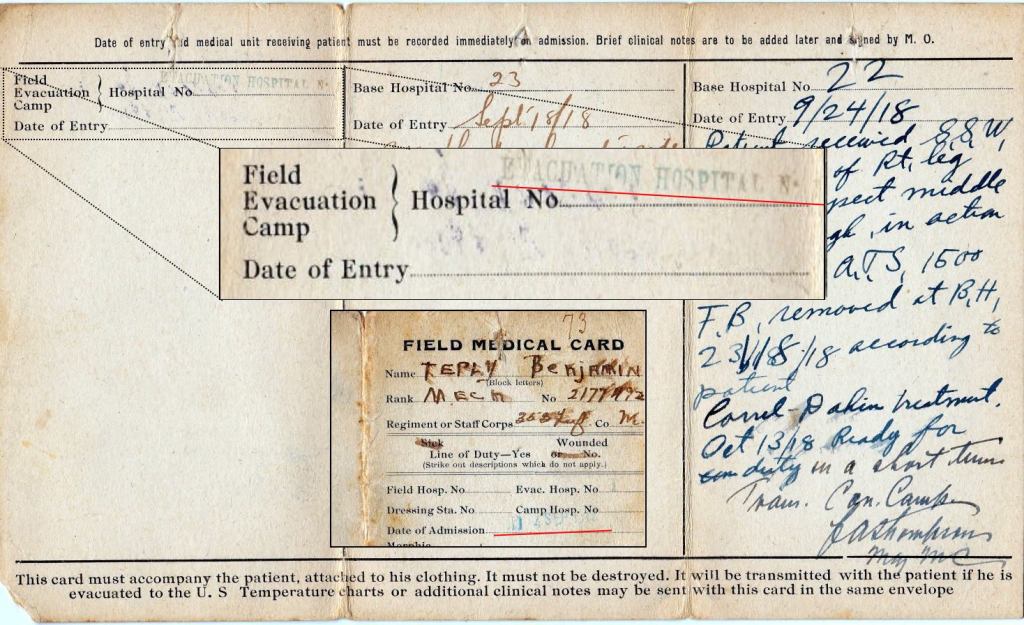 Date of entry and medical unit receiving patient must be recorded immediately on admission. Brief clinical notes are to be added later and signed by M. O.
Field
Evacuation
Camp
Hospital No.
EVACUATION HOSPITAL N.
Date of Entry
Base Hospital No. 23
Date of Entry Sept 18/18
Base Hospital No. 22
Date of Entry 9/24/18
Patient received G.S.W,
of Rt, leg
middle
in action
A.T.S, 1500
F.B, removed at B.H,
23 /18 according to
patient
Carrel Dakin treatment.
Oct 13/18 Ready for
duty in a short time
Trans. Con. Camp
Field
Evacuation
Camp
Hospital No.
EVACUATION HOSPITAL N.
Date of Entry
73
FIELD MEDICAL CARD
Name TEPLY BENJAMIN
(Block letters)
Rank MECH No
Regiment or Staff Corps Co M.
Sick Wounded
Line of Duty—Yes or No.
(Strike out descriptions which do not apply.)
Field Hosp. No. Evac. Hosp. No.
Dressing Sta. No. Camp Hosp. No.
Date of Admission
Morphia
This card must accompany the patient, attached to his clothing. It must not be destroyed. It will be transmitted with the patient if he is
evacuated to the U. S Temperature charts or additional clinical notes may be sent with this card in the same envelope